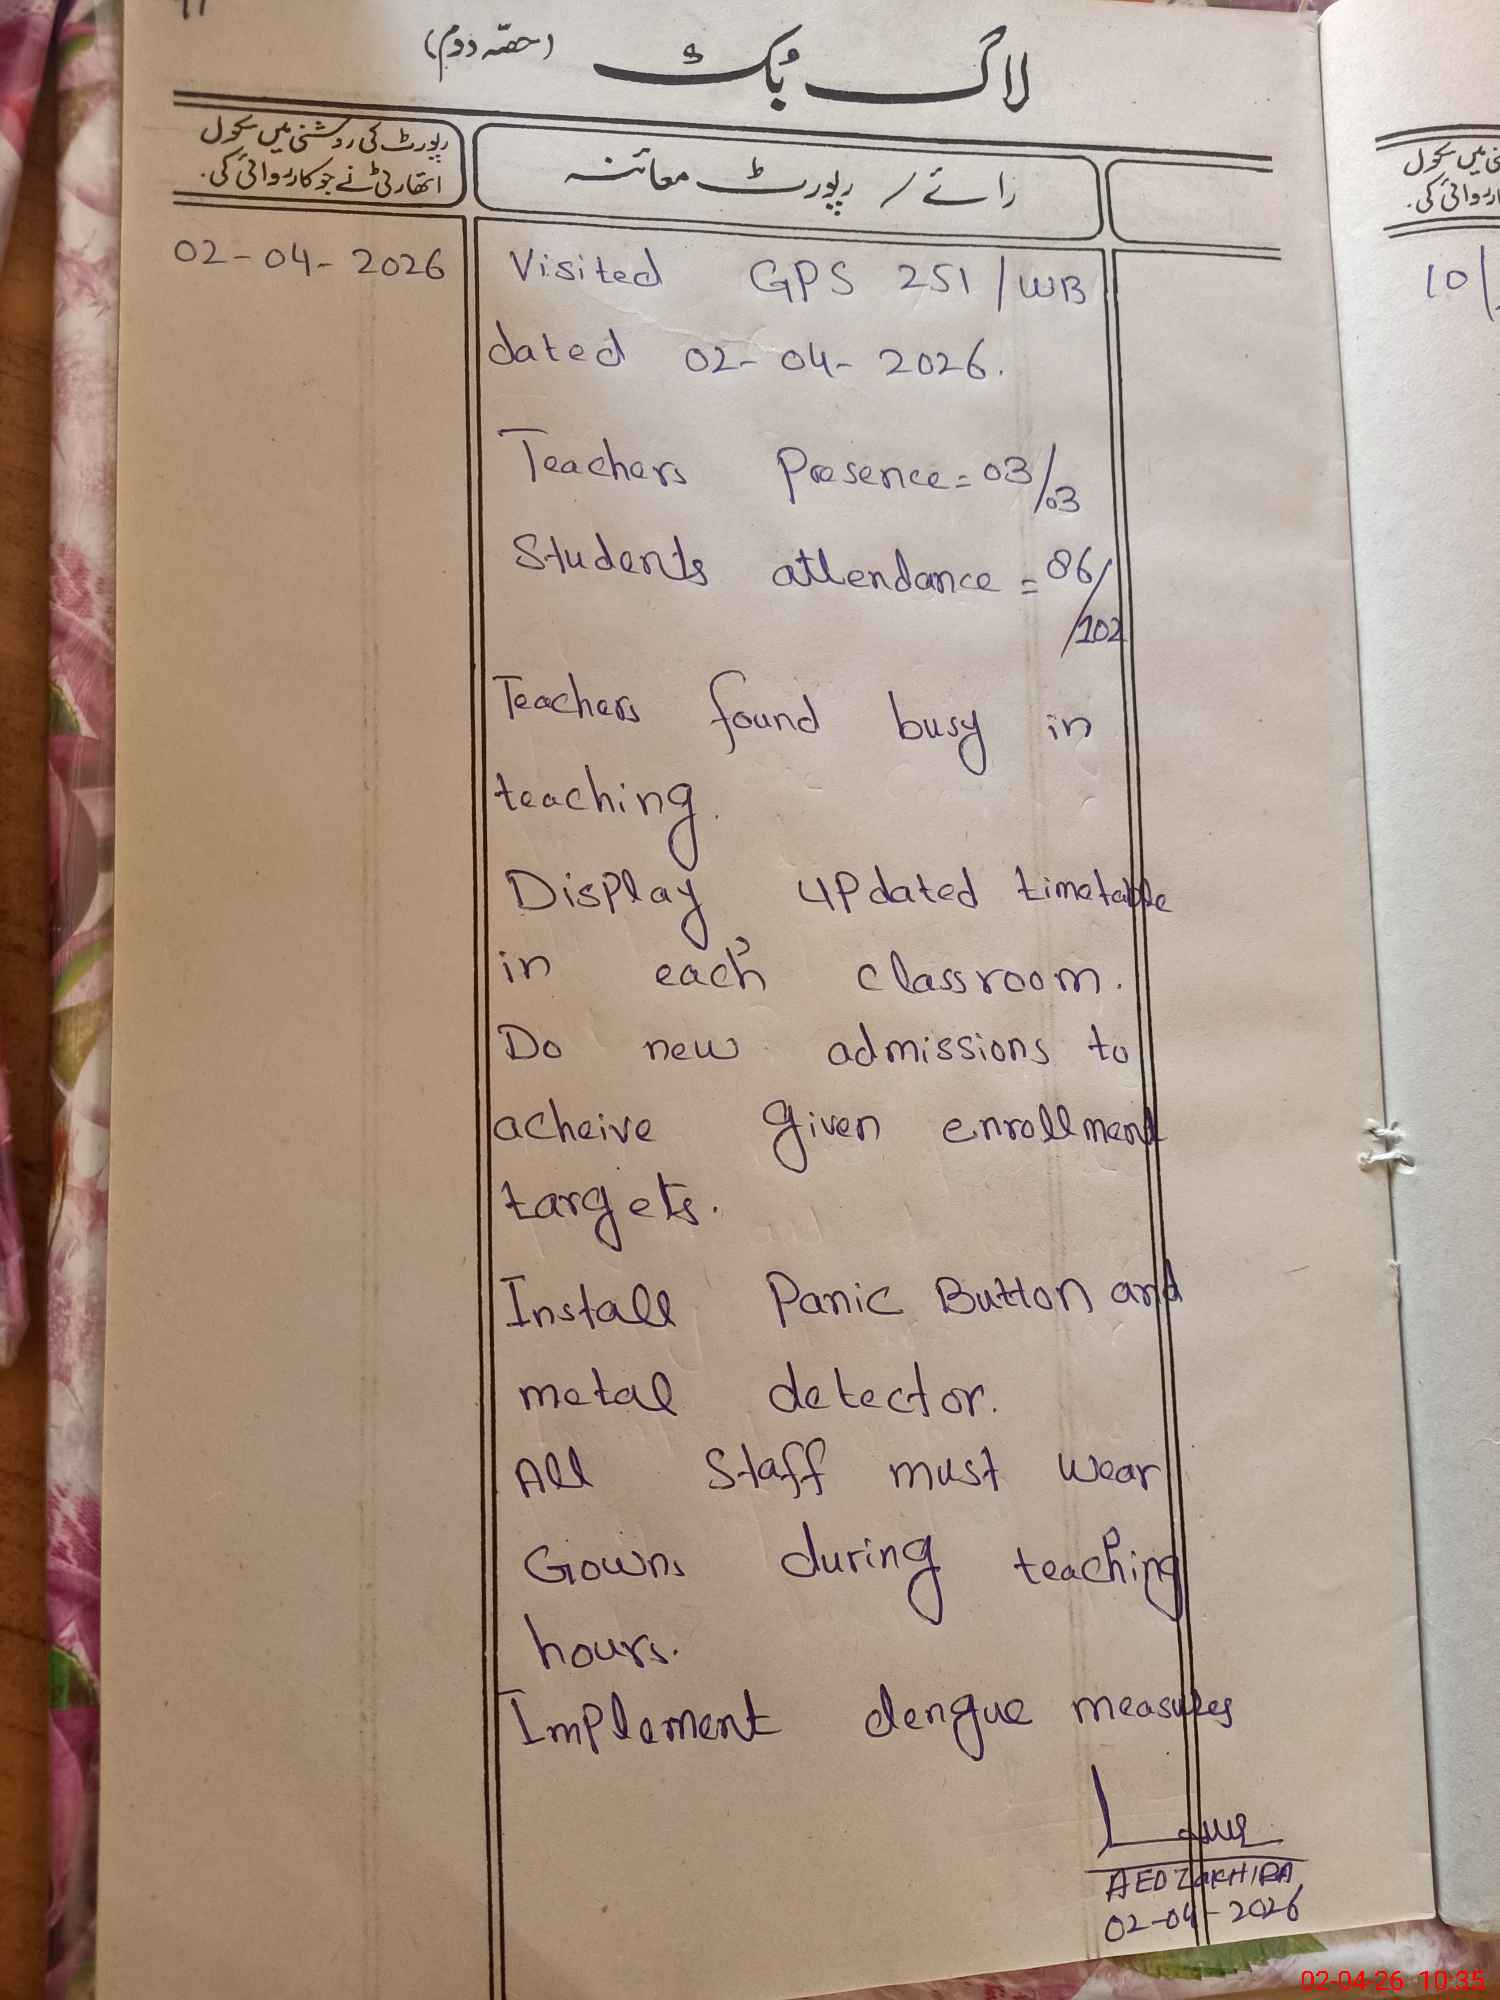 لاگ بُک (حصّہ دوم)
رپورٹ کی روشنی میں سکول
اتھارٹی نے جو کارروائی کی.
رائے / رپورٹ معائنہ
نی میں سکول
رروائی کی.
02-04-2026
Visited GPS 251/WB
dated 02-04-2026.
Teachers Presence = 03/03
Students attendance = 86/102
Teachers found busy in
teaching.
Display updated timetable
in each classroom.
Do new admissions to
acheive given enrollment
targets.
Install Panic Button and
metal detector.
All Staff must wear
Gowns during teaching
hours.
Implement dengue measures
AEO ZAKHIRA
02-04-2026
10/
02-04-26 10:35